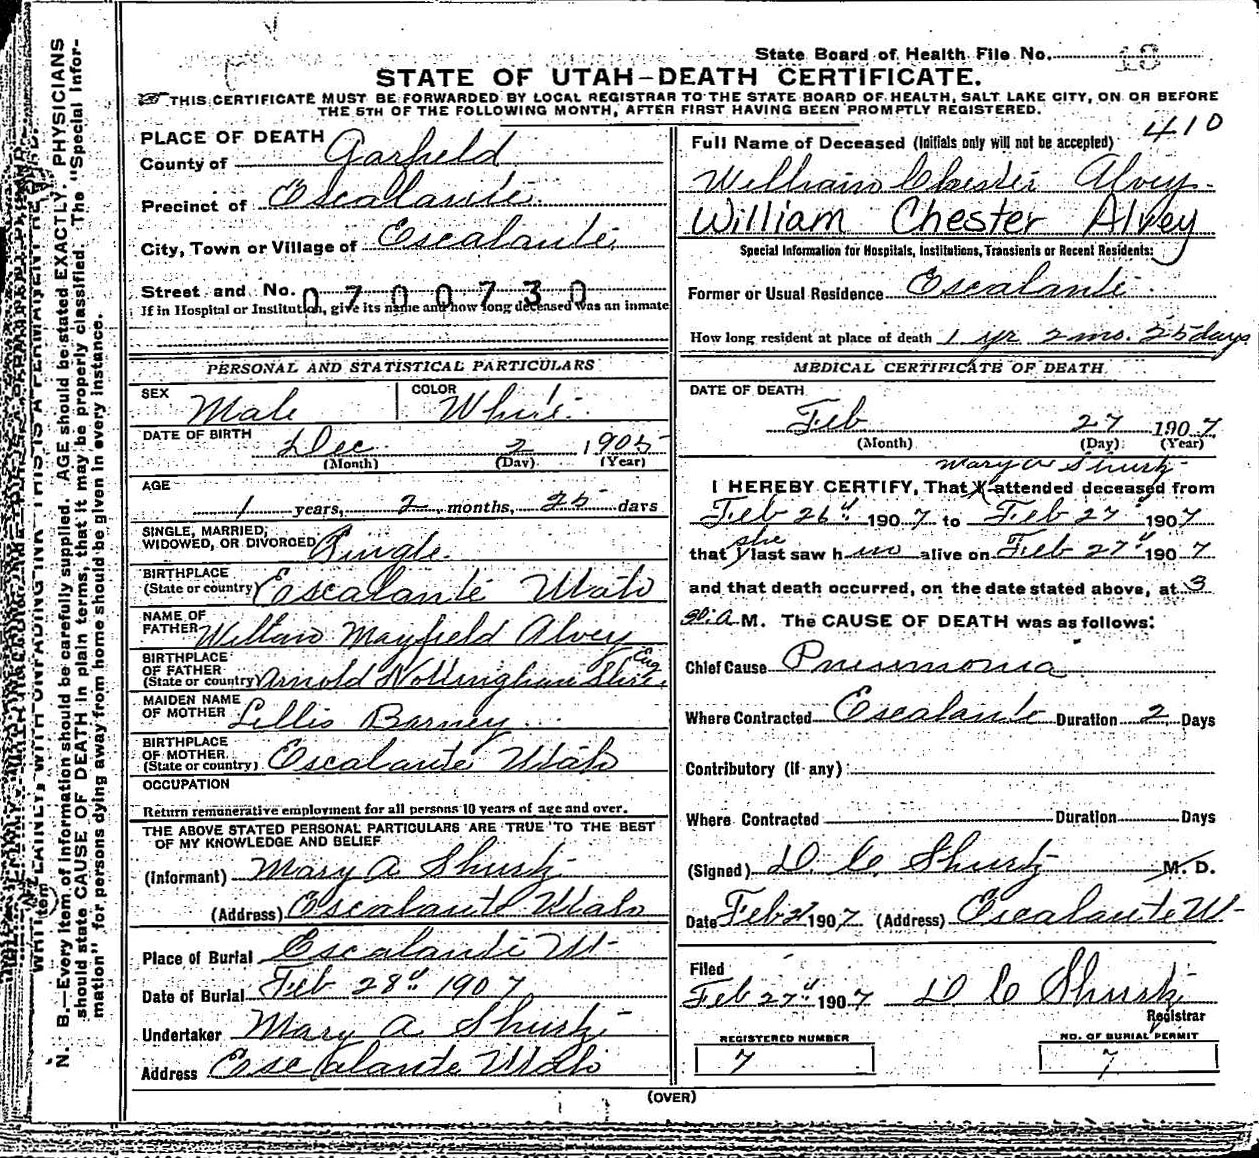 State Board of Health File No. 18
STATE OF UTAH-DEATH CERTIFICATE.
THIS CERTIFICATE MUST BE FORWARDED BY LOCAL REGISTRAR TO THE STATE BOARD OF HEALTH, SALT LAKE CITY, ON OR BEFORE
THE 5TH OF THE FOLLOWING MONTH, AFTER FIRST HAVING BEEN PROMPTLY REGISTERED.
PLACE OF DEATH
County of Garfield
Precinct of Escalante.
City, Town or Village of Escalante.
Street and No.
0700730
If in Hospital or Institution, give its name and how long deceased was an inmate
PERSONAL AND STATISTICAL PARTICULARS
SEX Male COLOR White
DATE OF BIRTH Dec 2 1905
(Month) (Day) (Year)
AGE
1 years, 2 months, 25 days
SINGLE, MARRIED,
WIDOWED, OR DIVORCED Single
BIRTHPLACE
(State or country) Escalante Utah
NAME OF
FATHER William Mayfield Alvey
BIRTHPLACE
OF FATHER Eng
(State or country) Arnold Nottingham Shire
MAIDEN NAME
OF MOTHER Lillis Barney
BIRTHPLACE
OF MOTHER
(State or country) Escalante Utah
OCCUPATION
Return remunerative employment for all persons 10 years of age and over.
THE ABOVE STATED PERSONAL PARTICULARS ARE TRUE TO THE BEST
OF MY KNOWLEDGE AND BELIEF
(Informant) Mary A Shurtz
(Address) Escalante Utah
Place of Burial Escalante Ut
Date of Burial Feb 28" 1907
Undertaker Mary A. Shurtz
Address Escalante Utah
410
Full Name of Deceased (Initials only will not be accepted)
William Chester Alvey.
William Chester Alvey
Special Information for Hospitals, Institutions, Transients or Recent Residents:
Former or Usual Residence Escalante
How long resident at place of death 1 yr 2 mo. 25 days
MEDICAL CERTIFICATE OF DEATH
DATE OF DEATH
Feb 27 1907
(Month) (Day) (Year)
Mary A Shurtz
I HEREBY CERTIFY, That I attended deceased from
Feb 26" 1907 to Feb 27" 1907
she
that I last saw him alive on Feb 27" 1907
and that death occurred, on the date stated above, at 3
A M. The CAUSE OF DEATH was as follows:
Chief Cause Pneumonia
Where Contracted Escalante Duration 2 Days
Contributory (if any)
Where Contracted Duration Days
(Signed) D. C. Shurtz M. D.
Date Feb 27 1907 (Address) Escalante Ut
Filed
Feb 27" 1907 D C Shurtz
Registrar
REGISTERED NUMBER
7
NO. OF BURIAL PERMIT
7
(OVER)
N. B.—Every item of information should be carefully supplied. AGE should be stated EXACTLY. PHYSICIANS
should state CAUSE OF DEATH in plain terms, that it may be properly classified. The "Special Infor-
mation" for persons dying away from home should be given in every instance.